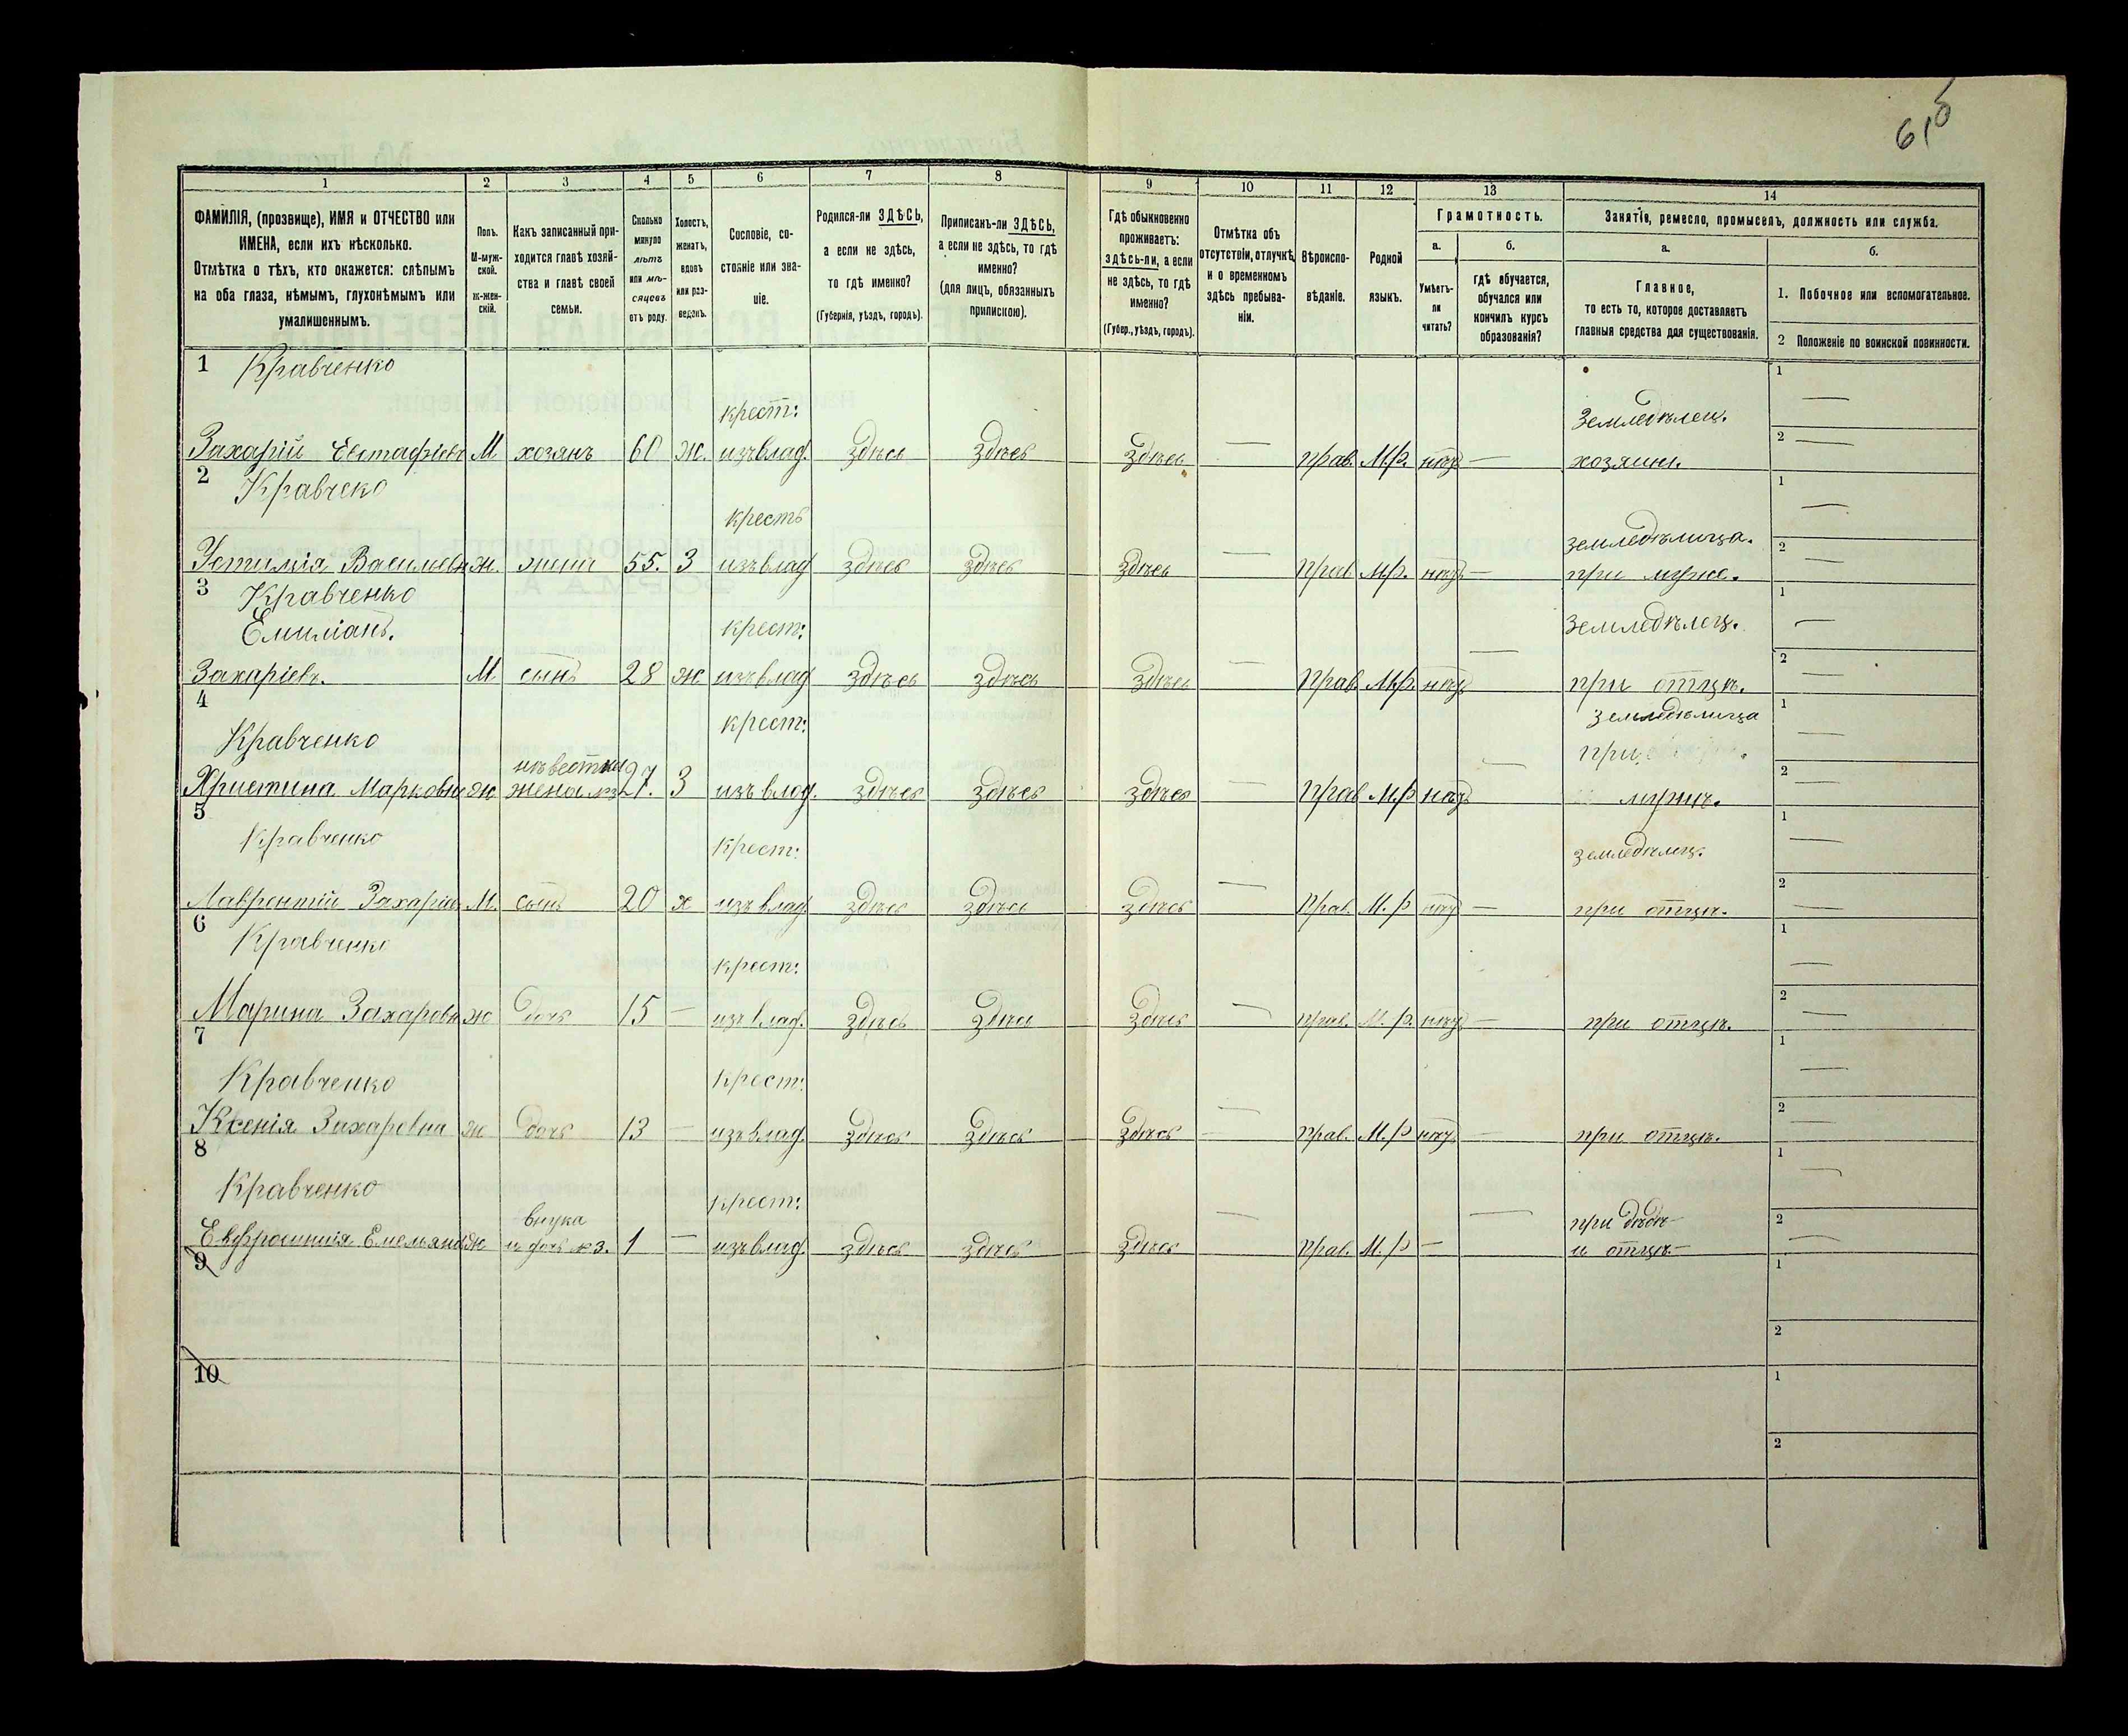 61б
1 2 3 4 5 6 7 8 9 10 11 12 13 14
ФАМИЛІЯ, (прозвище), ИМЯ и ОТЧЕСТВО или ИМЕНА, если ихъ нѣсколько.
Отмѣтка о тѣхъ, кто окажется: слѣпымъ на оба глаза, нѣмымъ, глухонѣмымъ или умалишеннымъ.
Полъ. М-мужской. ж-женскій.
Какъ записанный приходится главѣ хозяйства и главѣ своей семьи.
Сколько минуло лѣтъ или мѣсяцевъ отъ роду.
Холостъ, женатъ, вдовъ или разведенъ.
Сословіе, состояніе или званіе.
Родился-ли ЗДѢСЬ, а если не здѣсь, то гдѣ именно?
(Губернія, уѣздъ, городъ).
Приписанъ-ли ЗДѢСЬ, а если не здѣсь, то гдѣ именно?
(для лицъ, обязанныхъ припискою).
Гдѣ обыкновенно проживаетъ: здѣсь-ли, а если не здѣсь, то гдѣ именно?
(Губер., уѣздъ, городъ).
Отмѣтка объ отсутствіи, отлучкѣ и о временномъ здѣсь пребываніи.
Вѣроисповѣданіе.
Родной языкъ.
Грамотность.
а. Умѣетъ-ли читать?
б. гдѣ обучается, обучался или кончилъ курсъ образованія?
Занятіе, ремесло, промыселъ, должность или служба.
а. Главное, то есть то, которое доставляетъ главныя средства для существованія.
б.
1. Побочное или вспомогательное.
2 Положеніе по воинской повинности.
1 Кравченко
крест: Земледѣлец. 1 —
Захарій Евстафіевъ М хозянъ 60 ж. изъ влад. здѣсь здѣсь здѣсь — прав. М.р. нѣтъ — хозяинъ. 2 —
2 Кравчеко
крестъ земледѣлица. 1 —
Устимія Васильевн ж. жена 55. З изъ влад здѣсь здѣсь здѣсь — прав М.р. нѣтъ — при мужѣ. 2 —
3 Кравченко
Емиліанъ. крест: земледѣлец. 1 —
Захаріевъ. М сынъ 28 ж изъ влад здѣсь здѣсь здѣсь — прав М.р. нѣтъ — при отцѣ. 2 —
4 крест: земледѣлица 1 —
Кравченко при
невѣстка
Христина Марковна ж жена №3 27. З изъ влад. здѣсь здѣсь здѣсь — прав М.р нѣтъ — мужѣ. 2 —
5 Кравченко крест: земледѣлец. 1 —
Лаврентій Захаріев М. сынъ 20 х изъ влад. здѣсь здѣсь здѣсь — прав. М.р нѣтъ — при отцѣ. 2 —
6 Кравченко
крест: 1 —
Марина Захаровн ж дочь 15 — изъ влад. здѣсь здѣсь здѣсь — прав. М.р. нѣтъ — при отцѣ. 2 —
7 Кравченко крест: 1 —
Ксенія Захаровна ж дочь 13 — изъ влад. здѣсь здѣсь здѣсь — прав. М.р нѣтъ — при отцѣ. 2 —
8 Кравченко
крест: 1 —
внука при дѣдѣ
Евфросинія Емельян ж и дочь №3. 1 — изъ влад. здѣсь здѣсь здѣсь — прав. М.р — — и отцѣ — 2 —
9 1
2
10 1
2